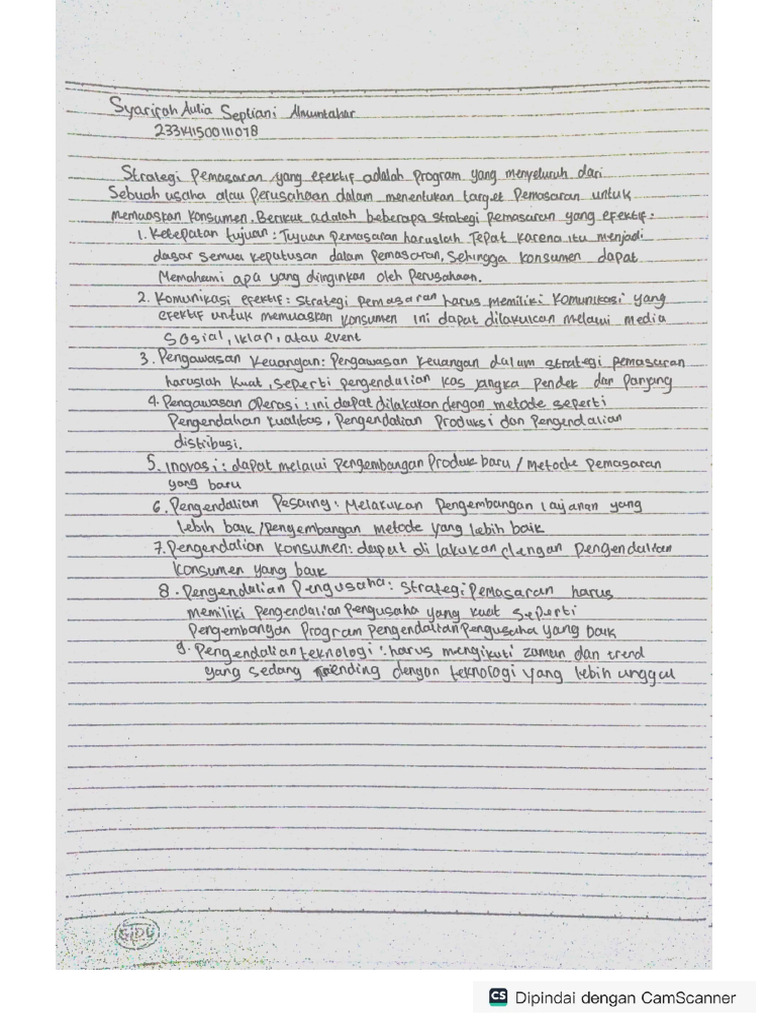 Syarifah Aulia Septiani Almuntahar
233141500111078
Strategi Pemasaran yang efektif adalah program yang menyeluruh dari
Sebuah usaha atau Perusahaan dalam menentukan target Pemasaran untuk
memuaskan Konsumen. Berikut adalah beberapa strategi pemasaran yang efektif:
1. Ketepatan tujuan: Tujuan Pemasaran haruslah Tepat karena itu menjadi
dasar semua keputusan dalam pemasaran, Sehingga konsumen dapat
Memahami apa yang diinginkan oleh Perusahaan.
2. Komunikasi efektif: Strategi Pemasaran harus memiliki Komunikasi yang
efektif untuk memuaskan Konsumen ini dapat dilakukan melalui media
Sosial, iklan, atau event
3. Pengawasan Keuangan: Pengawasan Keuangan dalam strategi pemasaran
haruslah Kuat, Seperti pengendalian kas jangka Pendek dan Panjang
4. Pengawasan Operasi: ini dapat dilakukan dengan metode seperti
Pengendalian Kualitas, Pengendalian Produksi dan Pengendalian
distribusi.
5. Inovasi: dapat melalui pengembangan Produk baru / Metode Pemasaran
yang baru
6. Pengendalian Pesaing: Melakukan Pengembangan layanan yang
lebih baik / Pengembangan metode yang lebih baik
7. Pengendalian konsumen: dapat di lakukan dengan Pengendalian
Konsumen yang baik
8. Pengendalian Pengusaha: Strategi Pemasaran harus
memiliki pengendalian Pengusaha yang kuat seperti
Pengembangan Program Pengendalian Pengusaha yang baik
9. Pengendalian teknologi: harus mengikuti zaman dan trend
yang sedang trending dengan teknologi yang lebih unggul
SIDU
CS Dipindai dengan CamScanner